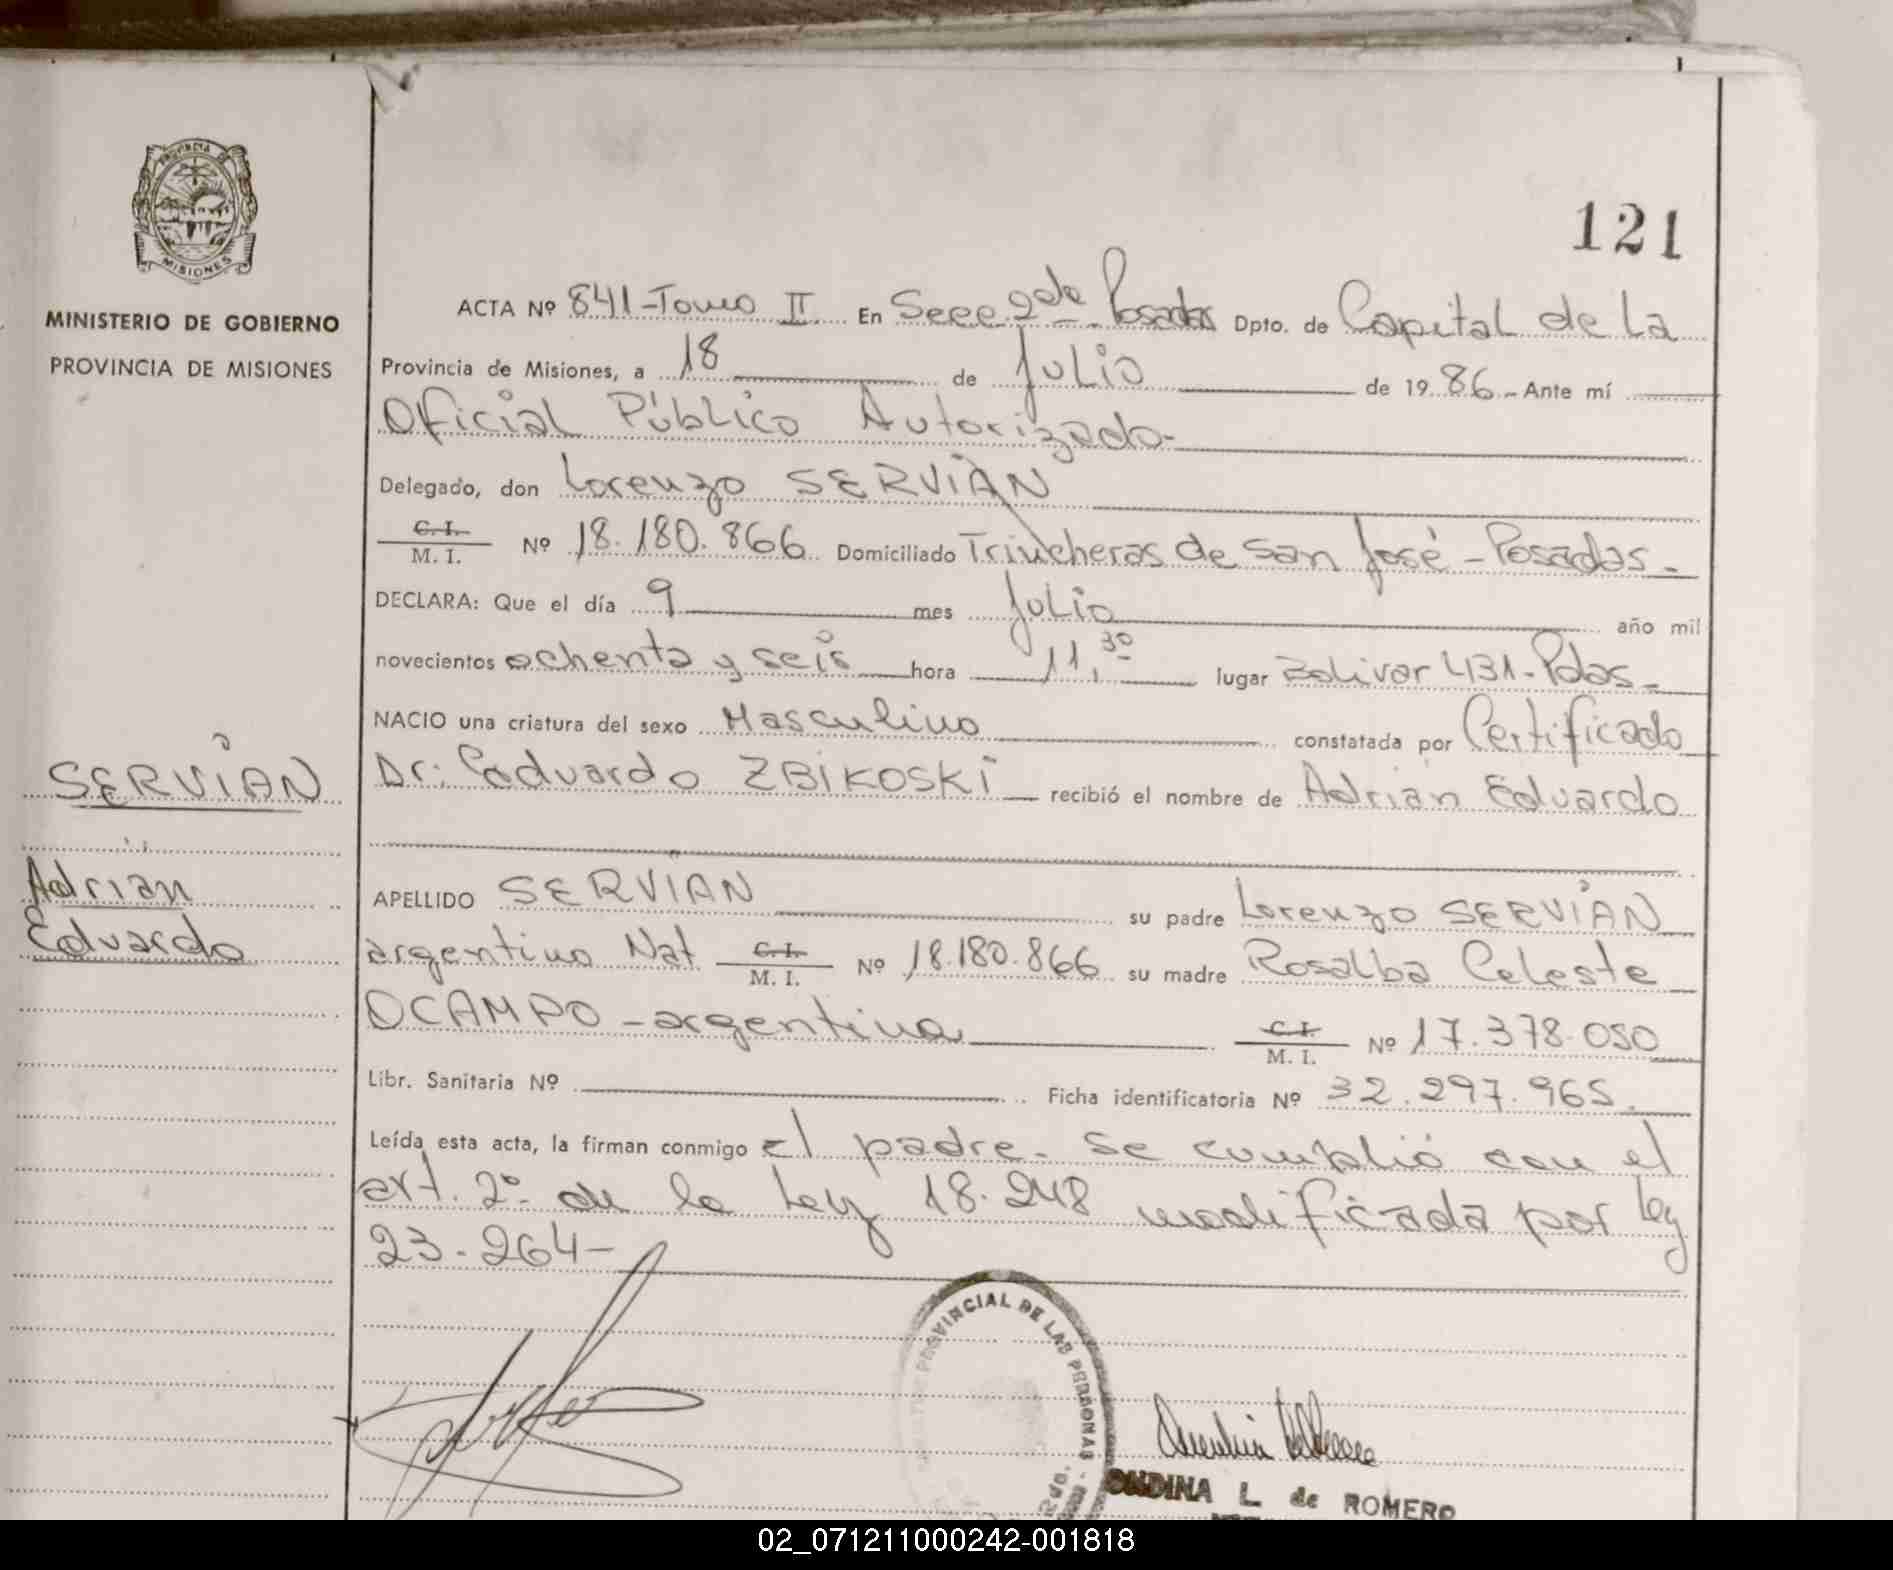 PROVINCIA DE
MISIONES
MINISTERIO DE GOBIERNO
PROVINCIA DE MISIONES
SERVIAN
Adrian
Eduardo
121
ACTA Nº 841-Tomo II En Secc 2da Posadas Dpto. de Capital de La
Provincia de Misiones, a 18 de Julio de 1986.- Ante mí
Oficial Público Autorizado-
Delegado, don Lorenzo SERVIAN
C.I.
M. I. Nº 18.180.866 Domiciliado Trincheras de San José - Posadas-
DECLARA: Que el día 9 mes Julio año mil
novecientos ochenta y seis hora 11,30 lugar Bolivar 431-Pdas-
NACIO una criatura del sexo Masculino constatada por Certificado
Dr: Eduardo ZBIKOSKI recibió el nombre de Adrian Eduardo
APELLIDO SERVIAN su padre Lorenzo SERVIAN
argentino Nat C.I. M. I. Nº 18.180.866 su madre Rosalba Celeste
OCAMPO - argentina C.I. M. I. Nº 17.378.050
Libr. Sanitaria Nº Ficha identificatoria Nº 32.297.965.
Leída esta acta, la firman conmigo el padre. Se cumplió con el
art. 2º de la Ley 18.248 modificada por Ley
23.264-
PROVINCIAL DE LAS PERSONAS -
ONDINA L. de ROMERO
02_071211000242-001818